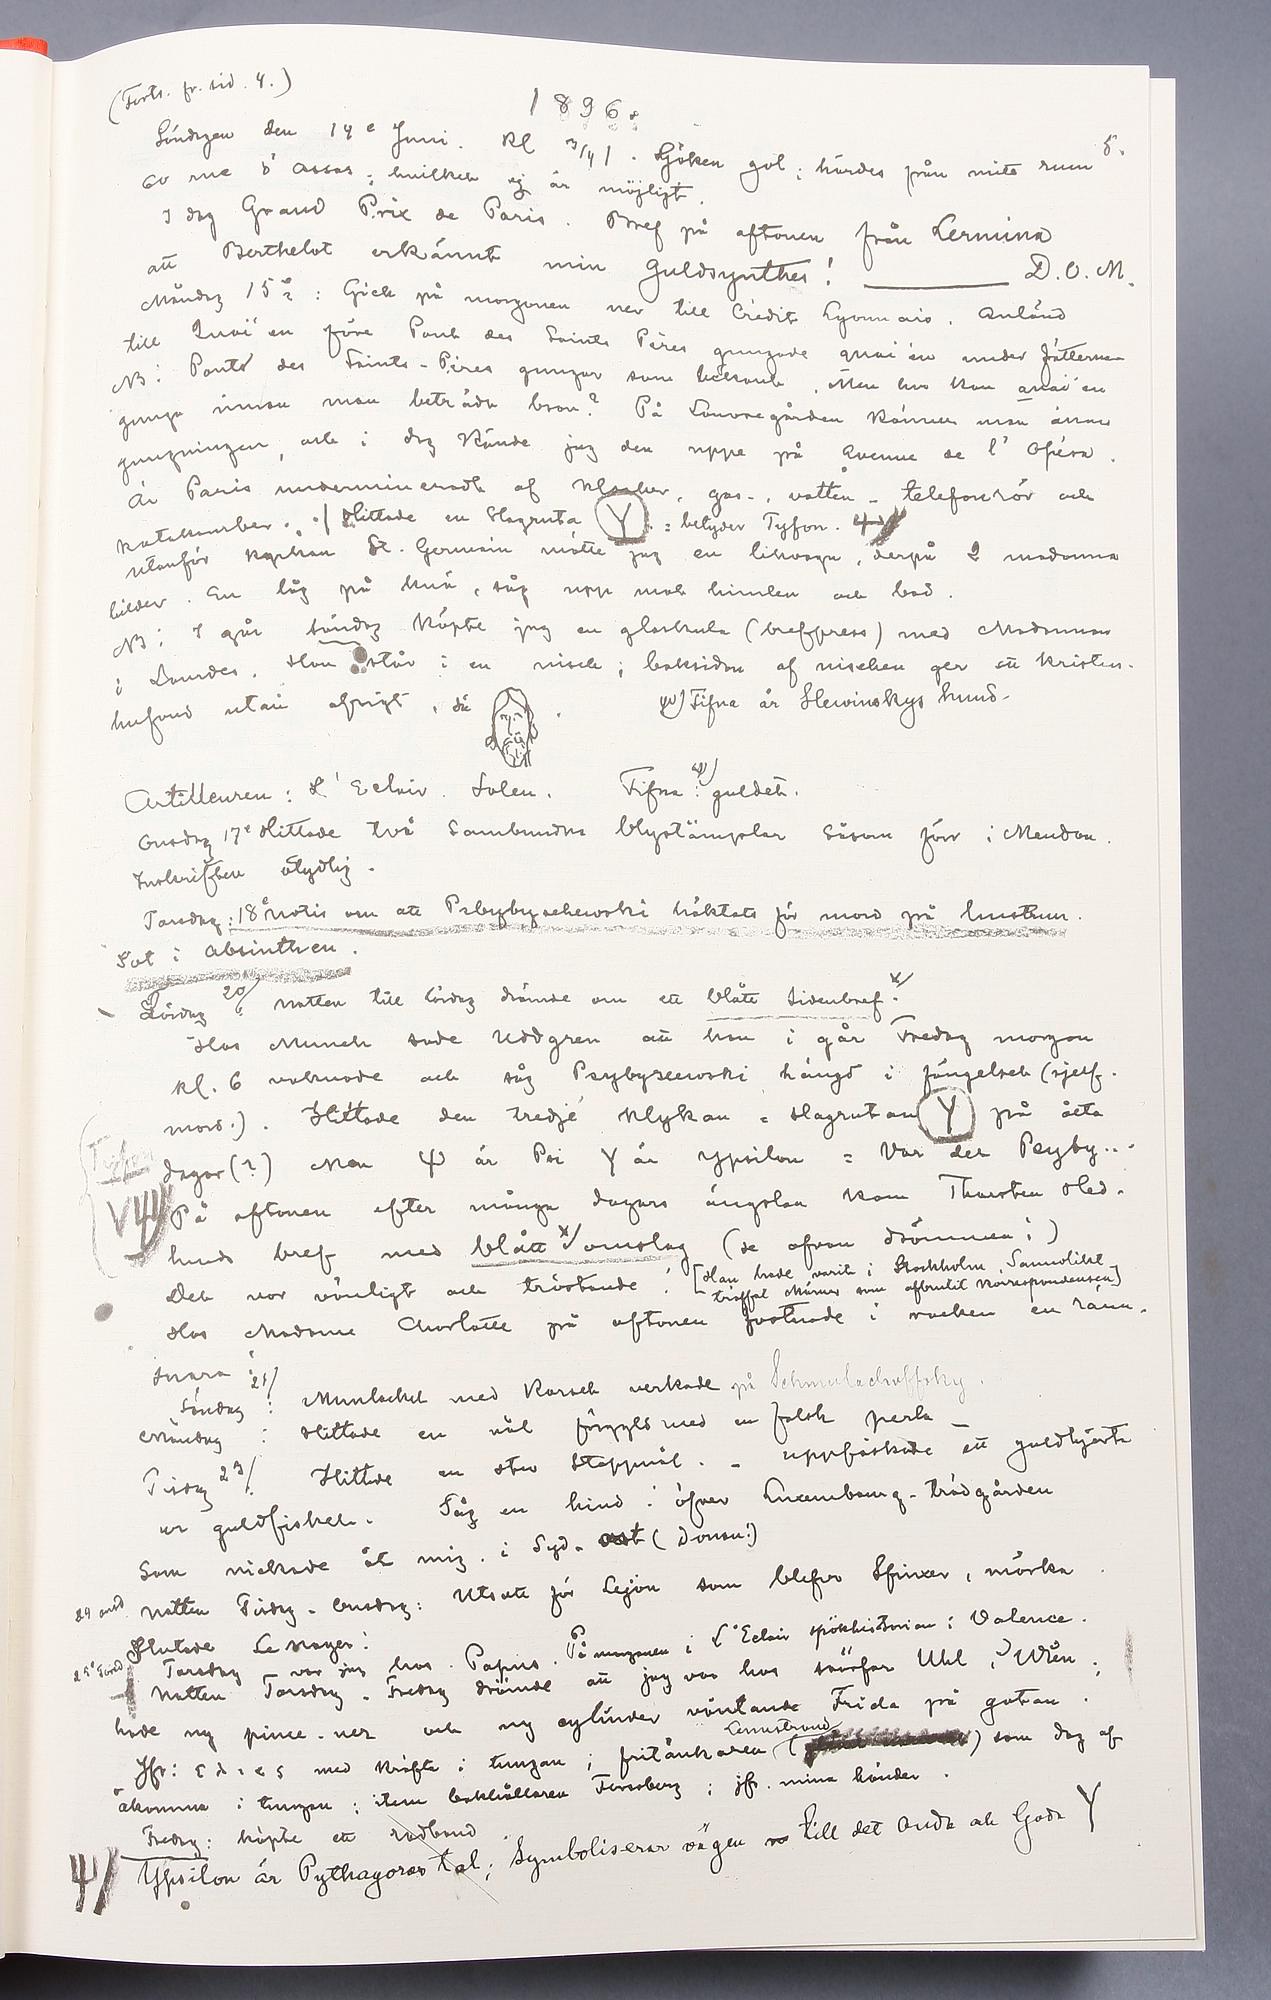 (Forts. fr. sid. 4.)
1896.
5.
Söndagen den 14e Juni. Kl 3/4 1. Göken gol; hördes från mitt rum
60 rue d'Assas; hvilket ej är möjligt.
I dag Grand Prix de Paris. Bref på aftonen från Lermina
att Berthelot erkännt min Guldsynthes! D.O.M.
Måndag 15e: Gick på morgonen ner till Crédit Lyonnais. Anländ
till Quai'en före Pont des Saints Pères gungade quai'en under fötterna
NB: Pont des Saints-Pères gungar som bekant. Men hur kan quai'en
gunga innan man beträdt bron? På Louvregården känner man ännu
gungningen, och i dag kände jag den uppe på Avenue de l'Opéra.
Är Paris undermineradt af kloaker, gas-, vatten- telefonrör och
katakomber. Hittade en Slagruta Y = betyder Tyfon. Ψ/
Utanför kyrkan St. Germain mötte jag en likvagn, derpå 2 madonna
bilder. En låg på knä, såg upp mot himlen och bad.
NB: I går söndag köpte jag en glaskula (brefpress) med Madonnan
i Lourdes. Hon står i en nisch; baksidan af nischen ger ett Kristus-
hufvud utan afsigt, så
Ψ) Fifna är Slewinskys hund.
Artilleuren: L'Eclair. Solen. Fifna Ψ/: guldet.
Onsdag 17e Hittade två sambundna blystämplar såsom förr i Meudon.
Inskriften otydlig.
Torsdag: 18e Notis om att Przybyschewski häktats för mord på hustrun.
Sot i Absinthen.
Lördag 20/: natten till lördag drömde om ett blått sidenbref. x/
Hos Munch sade Uddgren att han i går Fredag morgon
kl. 6 vaknade och såg Przybyszewski hängd i fängelset (sjelf-
mord.). Hittade den tredje klykan = slagrutan Y på åtta
dagar(?) Men Ψ är Psi Y är ypsilon = Var det Przyby...
Tyfon
VΨΨ
På aftonen efter många dagars ängslan kom Thorsten Hed-
lunds bref med blått x/ omslag (se ofvan drömmen!)
Det var vänligt och tröstande! [Han hade varit i Stockholm. Sannolikt
träffat som afbrutit korrespondensen]
Hos Madame Charlotte på aftonen fastnade i rocken en ränn-
snara!
Söndag 21/: Munlacket med Korset verkade på Schmulachoffsky.
Måndag: Hittade en nål förgyld med en falsk perla -
Tisdag 23/: Hittade en stor Stoppnål. - uppfiskade ett guldhjerta
ur guldfisken. Såg en hind! öfver Luxembourg-trädgården
som nickade åt mig. i Syd-ost (Donau!)
24 onsd. Natten Tisdag-Onsdag: Utsatt för Lejon som blefvo Sfinxer, mörka.
Slutade Le Noyer!
25e Torsd. Torsdag var jag hos Papus. På morgonen i L'Eclair spökhistorien i Valence.
Natten Torsdag-Fredag drömde att jag var hos svärfar Uhl i Wien;
hade ny pince-nez och ny cylinder väntande Frida på gatan.
Jfr: med kräfta i tungan; fritänkaren (Lennstrand) som dog af
åkomma i tungan; item bokhållaren Forssberg; jfr. mina händer.
Fredag: köpte ett rodband.
Ψ/ Ypsilon är Pythagoras tal; Symboliserar vägen till det Onda och Goda Y